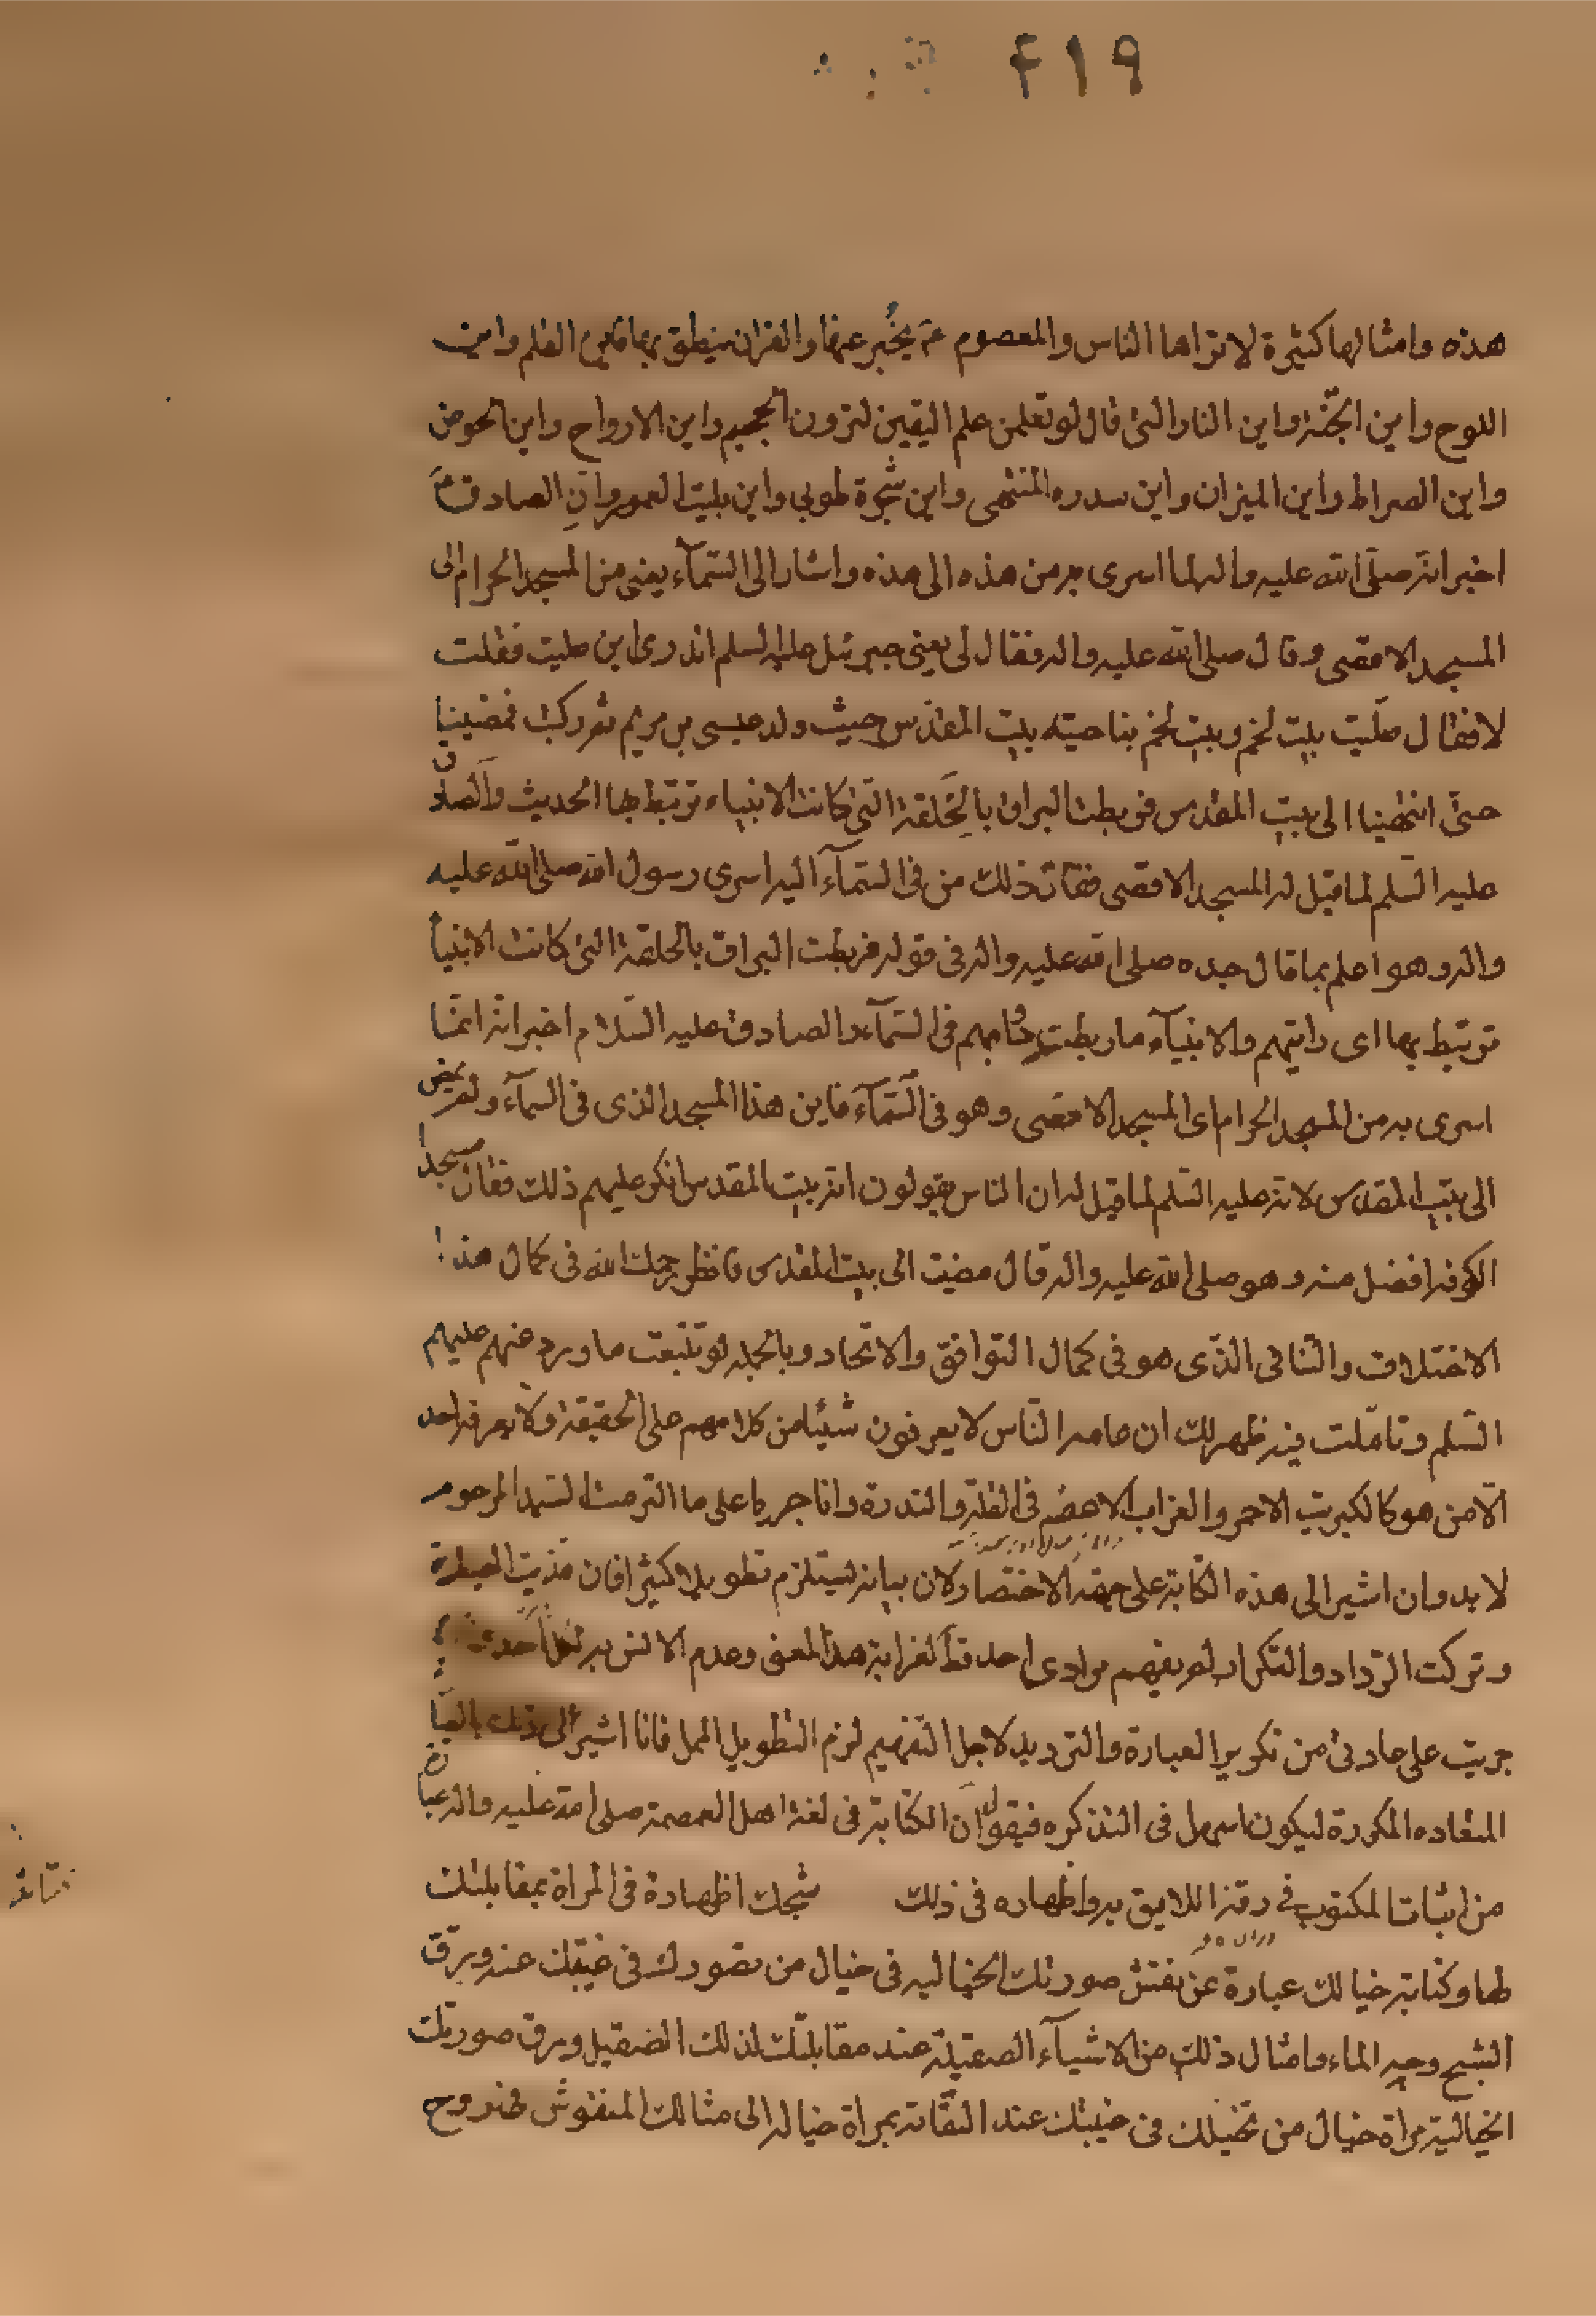 ۴۱۹
هذه وامثالها كثيرة لا تراها الناس والمعصوم ع يخبر عنها والقران ينطق بها فاين القلم واين
اللوح واين الجنة واين النار التى قال لو تعلمن علم اليقين لترون الجحيم واين الارواح واين الحوض
واين الصراط واين الميزان واين سدره المنتهى واين شجرة طوبى واين بيت المعمور وان الصادق ع
اخبر انه صلى الله عليه واله لما اسرى به من هذه الى هذه واشار الى السمآء يعنى من المسجد الحرام الى
المسجد الاقصى وقال صلى الله عليه واله فقال لى يعنى جبرئيل عليه السلم اتدرى اين صليت فقلت
لا فقال صليت ببيت لخم وبيت لخم بناحيته بيت المقدس حيث ولد عيسى بن مريم ثم ركبت فمضينا
حتى انتهينا الى بيت المقدس فربطت البراق بالحلقة التى كانت الانبياء تربتط بها الحديث والصادق
عليه السلم لما قيل له المسجد الاقصى فقال ذلك من فى السمآء اليه اسرى رسول الله صلى الله عليه
واله وهو اعلم بما قال جده صلى الله عليه واله فى قوله فربطت البراق بالحلقة التى كانت الانبيا
تربتط بها اى دابتهم والانبيآء ما ربطت دوابهم فى السمآء والصادق عليه السلام اخبر انه انما
اسرى به من المسجد الحرام اى المسجد الاقصى وهو فى السمآء فاين هذا المسجد الذى فى السمآء ولم يمض
الى بيت المقدس لانه عليه السلم لما قيل له ان الناس يقولون انه بيت المقدس انكر عليهم ذلك فقال مسجد
الكوفه افضل منه وهو صلى الله عليه واله قال مضيت الى بيت المقدس فانظر رحمك الله فى كمال هذا
الاختلاف والتنافى الذى هو فى كمال التوافق والاتحاد وبالجمله لو تتبعت ما ورد عنهم عليهم
السلم وتاملت فيه ظهر لك ان عامه الناس لا يعرفون شيئا من كلامهم على الحقيقة ولا يعرفه احد
الا من هو كالكبريت الاحمر والغراب الاعصم فى القلة والندرة وانا جريا على ما التزمت السيد المرحوم
لا بد وان اشير الى هذه الكتابة على جهة الاختصار لان بيانه يستلزم تطويلا كثيرا فان
وتركت الترداد والتكرار لم يفهم مرادى احد قط لغرابة هذا المعنى وعدم الانس به
جريت على عادتى من تكرير العبارة والترديد لاجل التفهيم لزم التطويل الممل فانا اشير الى ذلك بالعبارة
المكررة ليكون اسهل فى التذكره فيقول ان الكتابة فى لغة اهل العصمة صلى الله عليه واله عبارة
من اثبات المكتوب فى رقه اللايق به واظهاره فى ذلك شبحك اظهاره فى المراة بمقابلتك
لها وكتابة خيالك عبارة عن نقش صورتك الخياليه فى خيال من تصورك فى غيبتك عنه ورق
الشبح وجه الماء وامثال ذلك من الاشيآء الصقيلة عند مقابلتك لذلك الصقيل ورق صورتك
الخيالية مراة خيال من تخيلك فى غيبتك عند التفاته بمراة خياله الى مثالك المنقوش فى لوح